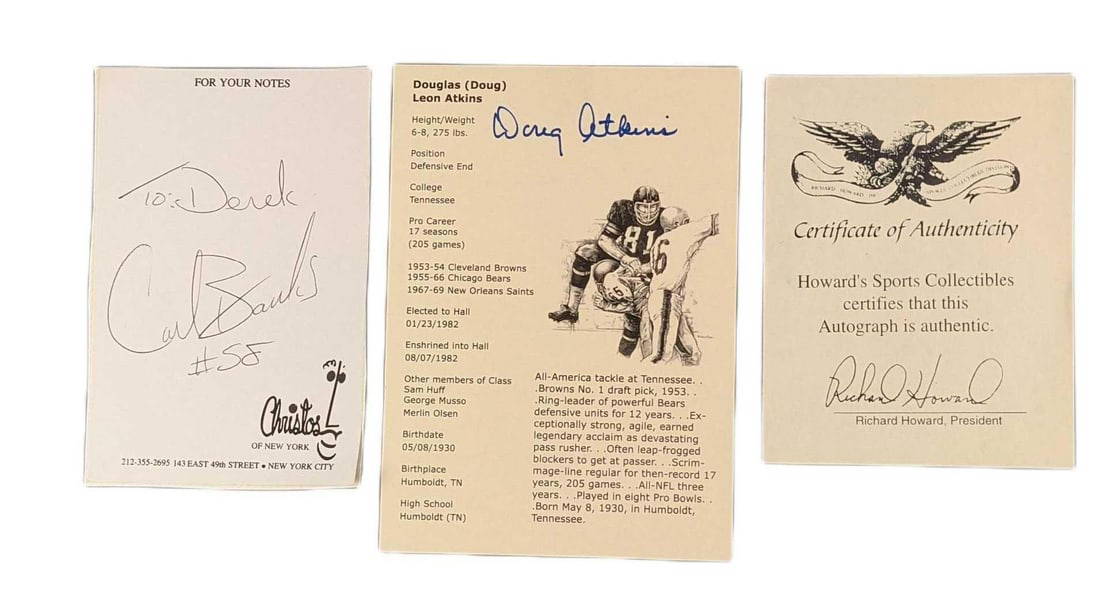 FOR YOUR NOTES
TO: Derek
Carl Banks
#58
Christos
OF NEW YORK
212-355-2695 143 EAST 49th STREET • NEW YORK CITY
Douglas (Doug)
Leon Atkins
Doug Atkins
Height/Weight
6-8, 275 lbs.
Position
Defensive End
College
Tennessee
Pro Career
17 seasons
(205 games)
1953-54 Cleveland Browns
1955-66 Chicago Bears
1967-69 New Orleans Saints
Elected to Hall
01/23/1982
Enshrined into Hall
08/07/1982
Other members of Class
Sam Huff
George Musso
Merlin Olsen
Birthdate
05/08/1930
Birthplace
Humboldt, TN
High School
Humboldt (TN)
81
6
All-America tackle at Tennessee. .
.Browns No. 1 draft pick, 1953. .
.Ring-leader of powerful Bears
defensive units for 12 years. . .Ex-
ceptionally strong, agile, earned
legendary acclaim as devastating
pass rusher. . .Often leap-frogged
blockers to get at passer. . .Scrim-
mage-line regular for then-record 17
years, 205 games. . .All-NFL three
years. . .Played in eight Pro Bowls. .
.Born May 8, 1930, in Humboldt,
Tennessee.
RICHARD HOWARD INC SPORTS COLLECTIBLES DIVISION
Certificate of Authenticity
Howard's Sports Collectibles
certifies that this
Autograph is authentic.
Richard Howard
Richard Howard, President